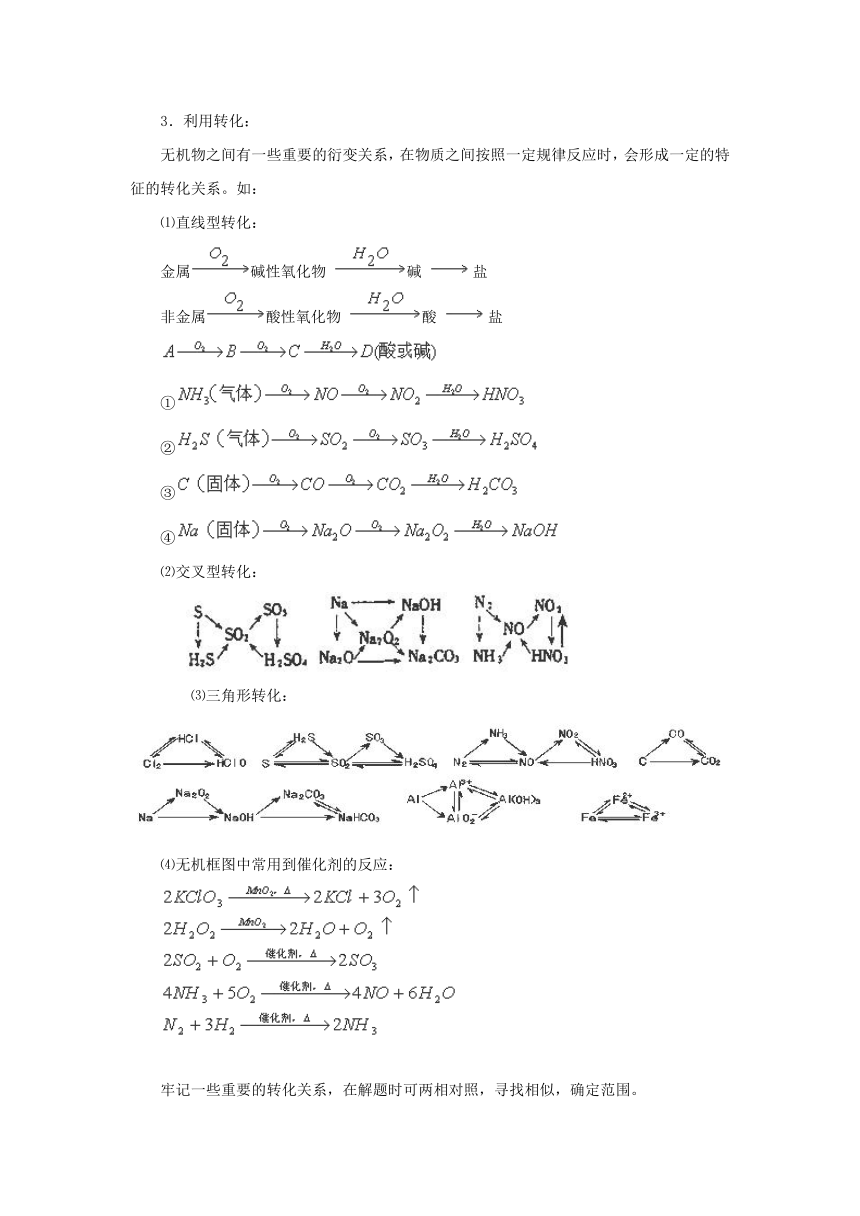 3．利用转化：
无机物之间有一些重要的衍变关系，在物质之间按照一定规律反应时，会形成一定的特
征的转化关系。如：
⑴直线型转化：
金属 O₂→ 碱性氧化物 H₂O→ 碱 → 盐
非金属 O₂→ 酸性氧化物 H₂O→ 酸 → 盐
A O₂→ B O₂→ C H₂O→ D(酸或碱)
①NH₃(气体) O₂→ NO O₂→ NO₂ H₂O→ HNO₃
②H₂S（气体) O₂→ SO₂ O₂→ SO₃ H₂O→ H₂SO₄
③C（固体) O₂→ CO O₂→ CO₂ H₂O→ H₂CO₃
④Na（固体) O₂→ Na₂O O₂→ Na₂O₂ H₂O→ NaOH
⑵交叉型转化：
S SO₃ Na → NaOH N₂ NO₂
SO₂ Na₂O₂ NO
H₂S H₂SO₄ Na₂O → Na₂CO₃ NH₃ HNO₃
⑶三角形转化：
HCl H₂S SO₃ NH₃ NO₂ CO
Cl₂ HClO S SO₂ H₂SO₄ N₂ NO HNO₃ C CO₂
Na₂O₂ Na₂CO₃ Al³⁺ Fe²⁺
Na NaOH NaHCO₃ Al AlO₂⁻ Al(OH)₃ Fe Fe³⁺
⑷无机框图中常用到催化剂的反应：
2KClO₃ MnO₂，Δ→ 2KCl + 3O₂↑
2H₂O₂ MnO₂→ 2H₂O + O₂↑
2SO₂ + O₂ 催化剂，Δ→ 2SO₃
4NH₃ + 5O₂ 催化剂，Δ→ 4NO + 6H₂O
N₂ + 3H₂ 催化剂，Δ→ 2NH₃
牢记一些重要的转化关系，在解题时可两相对照，寻找相似，确定范围。